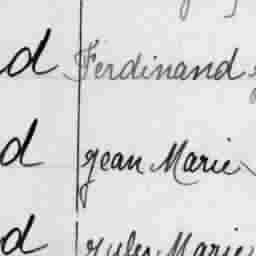 d Ferdinand
d Jean Marie
d Jules Marie